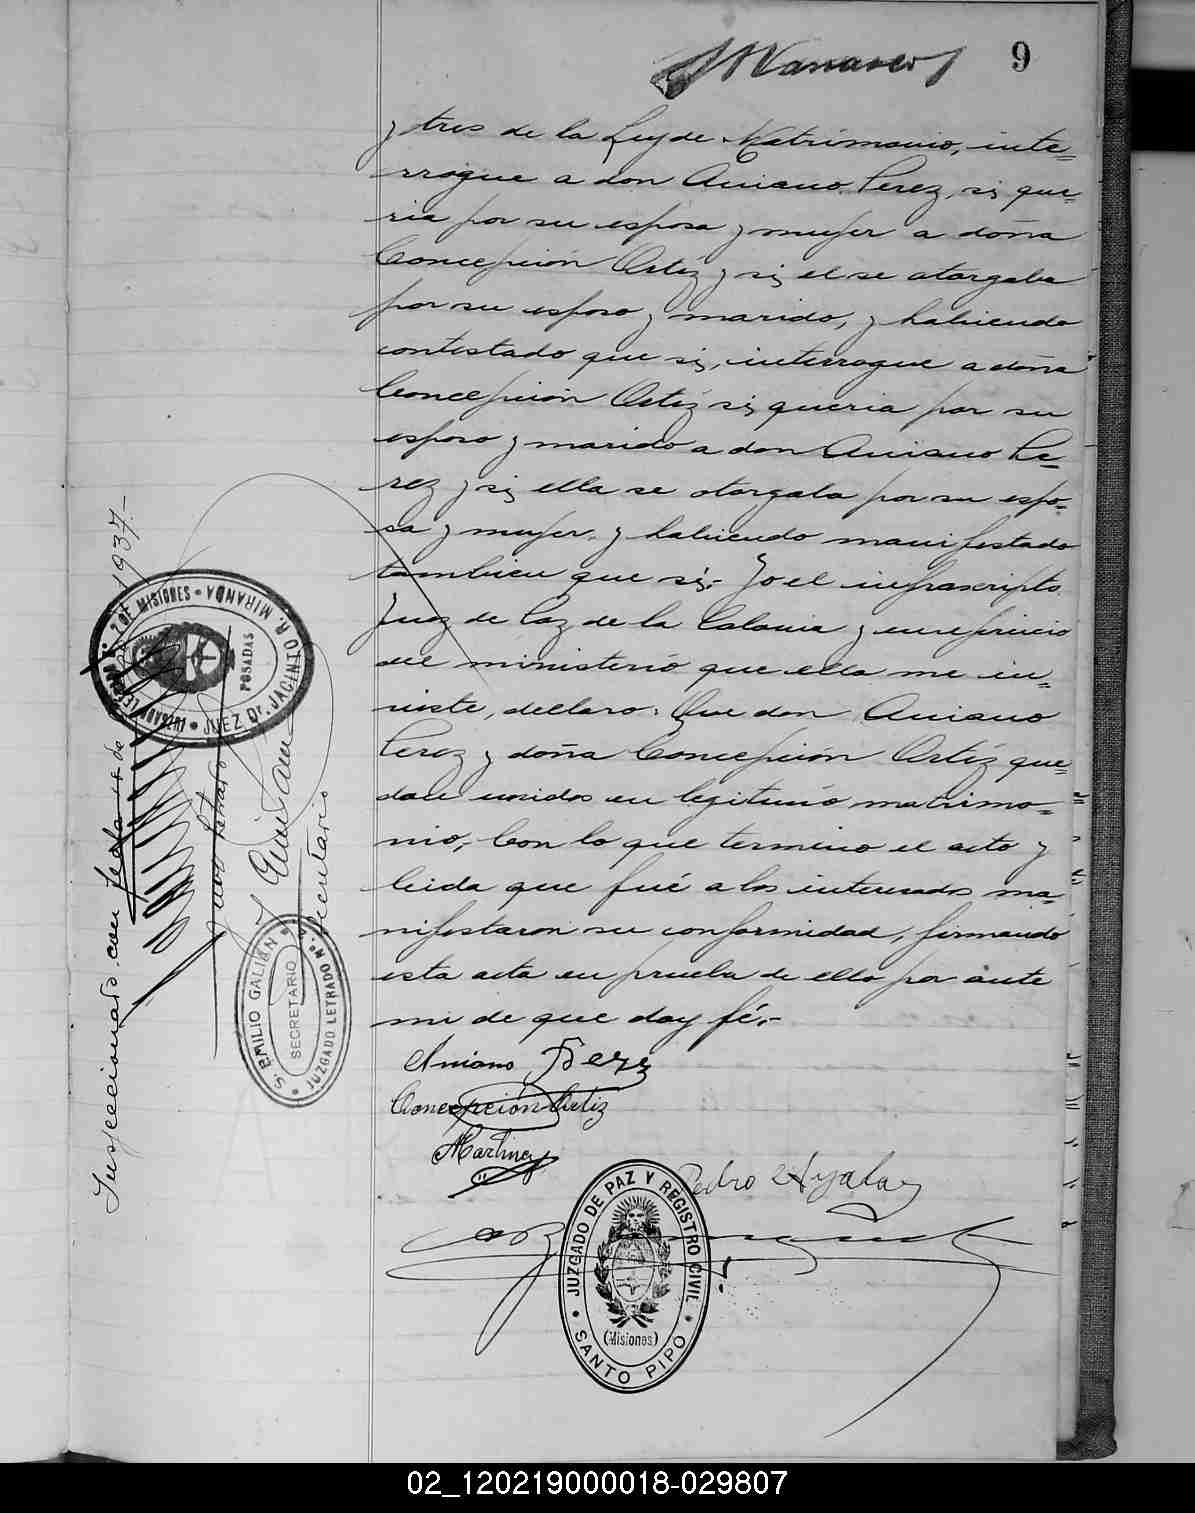 9
y tres de la Ley de Matrimonio, inte=
rrogue a don Aniano Perez, si, que=
ria por su esposa y mujer a doña
Concepción Ortiz y si, el se otorgaba
por su esposo y marido, y habiendo
contestado que si, interrogue a doña
Concepción Ortiz si, queria por su
esposo y marido a don Aniano Pe=
rez y si, ella se otorgaba por su espo=
sa y mujer, y habiendo manifestado
tambien que si.- Yo el infrascripto
Juez de Paz de la Colonia y en ejercicio
del ministerio que ella me in=
viste, declaro: Que don Aniano
Perez y doña Concepción Ortiz que=
dan unidos en legitimo matrimo=
nio, Con lo que termino el acto y
leida que fué a los interesados ma=
nifestaron su conformidad, firmando
esta acta en prueba de ello por ante
mi de que doy fé.-
Aniano Perez
Concepcion Ortiz
Martinez
Pedro Ayala
JUZGADO DE PAZ Y REGISTRO CIVIL
(Misiones)
SANTO PIPO
Inspeccionado con fecha de 1937.-
JUZGADO LETRADO N.º 2 DE MISIONES
JUEZ Dr. JACINTO R. MIRANDA
POSADAS
Juez Letrado
Secretario
S. EMILIO GALIÁN
SECRETARIO
JUZGADO LETRADO Nº.
02_120219000018-029807